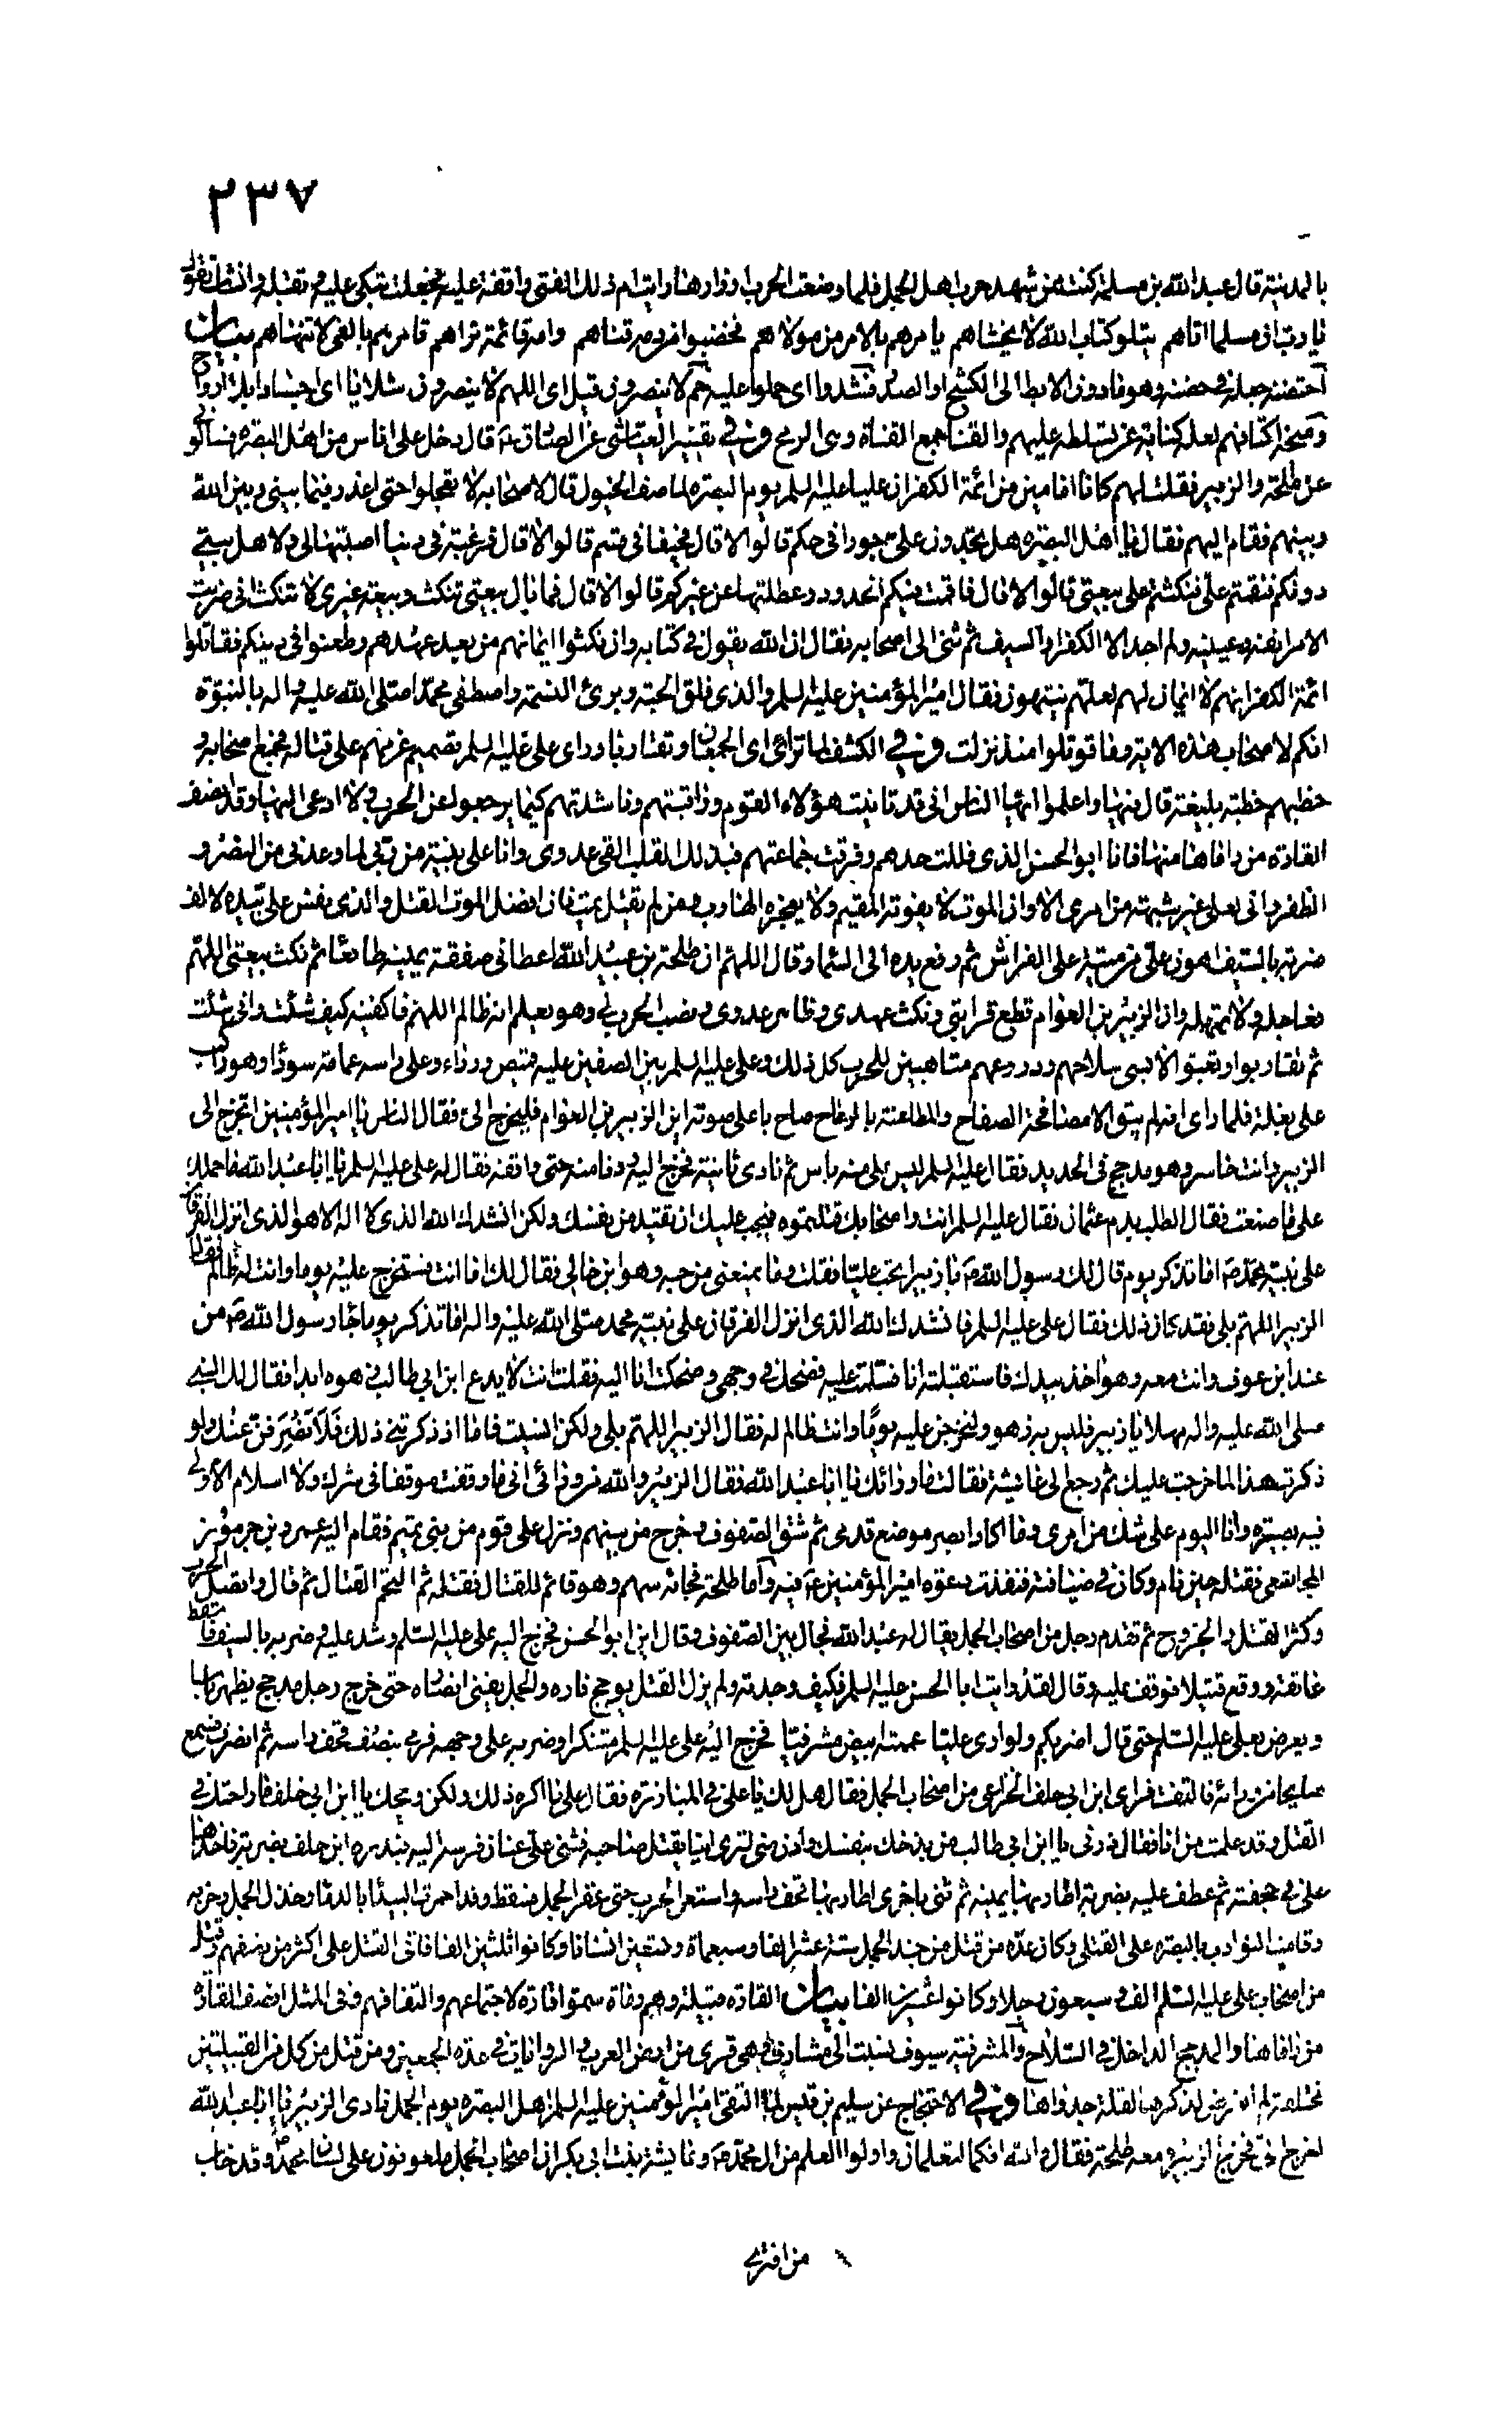 ٢٣٧
بالمدينة قال عبد الله بن مسلمة كنت ممن شهد حرب اهل الجمل فلما وضعت الحرب اوزارها رايت ام ذلك الفتى واقفة عليه فجعلت تبكى عليه و تقبله وانشات تقول
يا رب ان مسلما اتاهم يتلو كتاب الله لا يخشاهم يامرهم بالامر من مولاهم فخضبوا من دمه قناهم وامه قائمة تراهم تامرهم بالغى لا تنهاهم بيان
احتضنه جعله فى حضنه وهو ما دون الابط الى الكشح او الصدر فشدوا اى حملوا عليه حم لا ينصرون قيل اى اللهم لا ينصرون
ومنحه اكتافهم لعله كناية عن تسلطه عليهم والقنا جمع القناة وهى الرمح و فى تفسير العياشى عن الصادق قال دخل على اناس من اهل البصرة فسالونى
عن طلحة والزبير فقلت لهم كانا امامين من ائمة الكفر ان عليا عليه السلم يوم البصرة لما صف الخيول قال لاصحابه لا تعجلوا حتى اعذر فيما بينى وبين الله
وبينهم فقام اليهم فقال يا اهل البصرة هل تجدون على جورا فى حكم قالوا لا قال فحيفا فى قسم قالوا لا قال فرغبة فى دنيا اصبتها لى ولاهل بيتى
دونكم فنقمتم على فنكثتم على بيعتى قالوا لا قال فاقمت فيكم الحدود وعطلتها عن غيركم قالوا لا قال فما بال بيعتى تنكث وبيعة غيرى لا تنكث انى ضربت
الامر انفه وعينيه ولم اجد الا الكفر او السيف ثم ثنى الى اصحابه فقال ان الله يقول فى كتابه وان نكثوا ايمانهم من بعد عهدهم وطعنوا فى دينكم فقاتلوا
ائمة الكفر انهم لا ايمان لهم لعلهم ينتهون فقال امير المؤمنين عليه السلم والذى فلق الحبة وبرئ النسمة واصطفى محمدا صلى الله عليه واله بالنبوة
انكم لاصحاب هذه الاية وما قوتلوا منذ نزلت و فى الكشف لما تراءى الجمعان وتقاربا وراى على عليه السلم تصميم عزمهم على قتاله فجمع اصحابه و
خطبهم خطبة بليغة قال فيها واعلموا ايها الناس انى قد تانيت هؤلاء القوم وراقبتهم وناشدتهم كيما يرجعوا عن الحرب ولا ادعى اليها وقد انصف
القارة من راماها منها فانا ابو الحسن الذى فللت حدهم وفرقت جماعتهم فبذلك القلب القى عدوى وانا على بينة من ربى لما وعدنى من النصر و
الظفر وانى لعلى غير شبهة من امرى الا وان الموت لا يفوته المقيم ولا يعجزه الهارب ومن لم يقتل يمت فان افضل الموت القتل والذى نفس على بيده لالف
ضربة بالسيف اهون على من ميتة على الفراش ثم رفع يده الى السماء وقال اللهم ان طلحة بن عبيد الله اعطانى صفقة بيمينه طائعا ثم نكث بيعتى اللهم
فعاجله ولا تمهله وان الزبير بن العوام قطع قرابتى ونكث عهدى وظاهر عدوى ونصب الحرب لى وهو يعلم انه ظالم اللهم فاكفنيه كيف شئت وانى شئت
ثم تقاربوا وتعبوا لابسى سلاحهم ودروعهم متاهبين للحرب كل ذلك وعلى عليه السلم بين الصفين عليه قميص ورداء وعلى راسه عمامة سوداء وهو راكب
على بغلة فلما راى انه لم يبق الا مصافحة الصفاح والمطاعنة بالرماح صاح باعلى صوته اين الزبير بن العوام فليخرج الى فقال الناس يا امير المؤمنين اتخرج الى
الزبير وانت حاسر وهو مدجج فى الحديد فقال عليه السلم ليس على منه باس ثم نادى ثانية فخرج اليه ودنا منه حتى واقفه فقال له على عليه السلم يا ابا عبد الله ما حملك
على ما صنعت فقال الطلب بدم عثمان فقال عليه السلم انت واصحابك قتلتموه فيجب عليك ان تقيد من نفسك ولكن انشدك الله الذى لا اله الا هو الذى انزل الفرقان
على نبيه محمد ص اما تذكر يوم قال لك رسول الله ص يا زبير اتحب عليا فقلت وما يمنعنى من حبه وهو ابن خالى فقال لك اما انت فستخرج عليه يوما وانت له ظالم فقال
الزبير اللهم بلى فقد كان ذلك فقال على عليه السلم فانشدك الله الذى انزل الفرقان على نبيه محمد صلى الله عليه واله اما تذكر يوما جاء رسول الله ص من
عند ابن عوف وانت معه وهو اخذ بيدك فاستقبلته انا فسلمت عليه فضحك فى وجهى وضحكت انا اليه فقلت انت لا يدع ابن ابى طالب زهوه ابدا فقال لك النبى
صلى الله عليه واله مهلا يا زبير فليس به زهو ولتخرجن عليه يوما وانت ظالم له فقال الزبير اللهم بلى ولكن انسيت فاما اذ ذكرتنى ذلك فلانصرفن عنك ولو
ذكرت هذا لما خرجت عليك ثم رجع الى عائشة فقالت ما وراءك يا ابا عبد الله فقال الزبير والله ورائى انى ما وقفت موقفا فى شرك ولا اسلام الا ولى
فيه بصيرة وانا اليوم على شك من امرى وما اكاد ابصر موضع قدمى ثم شق الصفوف وخرج من بينهم ونزل على قوم من بنى تميم فقام اليه عمرو بن جرموز
المجاشعى فقتله حين نام وكان فى ضيافته فنفذت دعوة امير المؤمنين ع فيه واما طلحة فجاءه سهم وهو قائم للقتال فقتله ثم التحم القتال ثم قال واتصل الحرب
وكثر القتل والجروح ثم تقدم رجل من اصحاب الجمل يقال له عبد الله فجال بين الصفوف وقال اين ابو الحسن فخرج اليه على عليه السلم وشد عليه و ضربه بالسيف فاسقط
عاتقه ووقع قتيلا فوقف عليه وقال لقد رايت ابا الحسن عليه السلم فكيف وجدته ولم يزل القتل يؤجج ناره والجمل يفنى انصاره حتى خرج رجل مدجج يظهر باسا
ويعرض بعلى عليه السلم حتى قال اضربكم ولو ارى عليا عممته ابيض مشرفيا فخرج اليه على عليه السلم متنكرا وضربه على وجهه فرمى بنصف قحف راسه ثم انصرف فسمع
صايحا من ورائه فالتفت فراى ابن ابى خلف الخزاعى من اصحاب الجمل فقال هل لك يا على فى المبارزة فقال على ما اكره ذلك ولكن ويحك يا ابن ابى خلف ما راحتك فى
القتل وقد علمت من انا فقال ذرنى يا ابن ابى طالب من بذخك بنفسك وادن منى لترى اينا يقتل صاحبه فثنى على عنان فرسه اليه فبدره ابن خلف بضربة فاخذها
على فى جحفته ثم عطف عليه بضربة اطار بها يمينه ثم ثنى باخرى اطار بها قحف راسه واستعر الحرب حتى عقر الجمل فسقط وقد احمرت البيداء بالدماء وخذل الجمل وحزبه
وقامت النوادب بالبصرة على القتلى وكان عدة من قتل من جند الجمل ستة عشر الفا وسبعماة وتسعين انسانا وكانوا ثلثين الفا فاتى القتل على اكثر من نصفهم وقتل
من اصحاب على عليه السلم الف و سبعون رجلا وكانوا عشرين الفا بيان القارة قبيلة وهم رماة سموا قارة لاجتماعهم والتفافهم وفى المثل انصف القارة
من راماها والمدجج الداخل فى السلاح والمشرفية سيوف نسبت الى مشارف وهى قرى من ارض العرب والروايات فى عدة الجمعين ومن قتل من كل من القبيلتين
مختلفة لم نعرض لذكرها لقلة جدواها و فى الاحتجاج عن سليم بن قيس لما التقى امير المؤمنين عليه السلم اهل البصرة يوم الجمل نادى الزبير يا ابا عبد الله
اخرج الى فخرج الزبير ومعه طلحة فقال والله انكما لتعلمان واولوا العلم من ال محمد ص وعايشة بنت ابى بكر ان اصحاب الجمل ملعونون على لسان محمد ص وقد خاب
من افترى